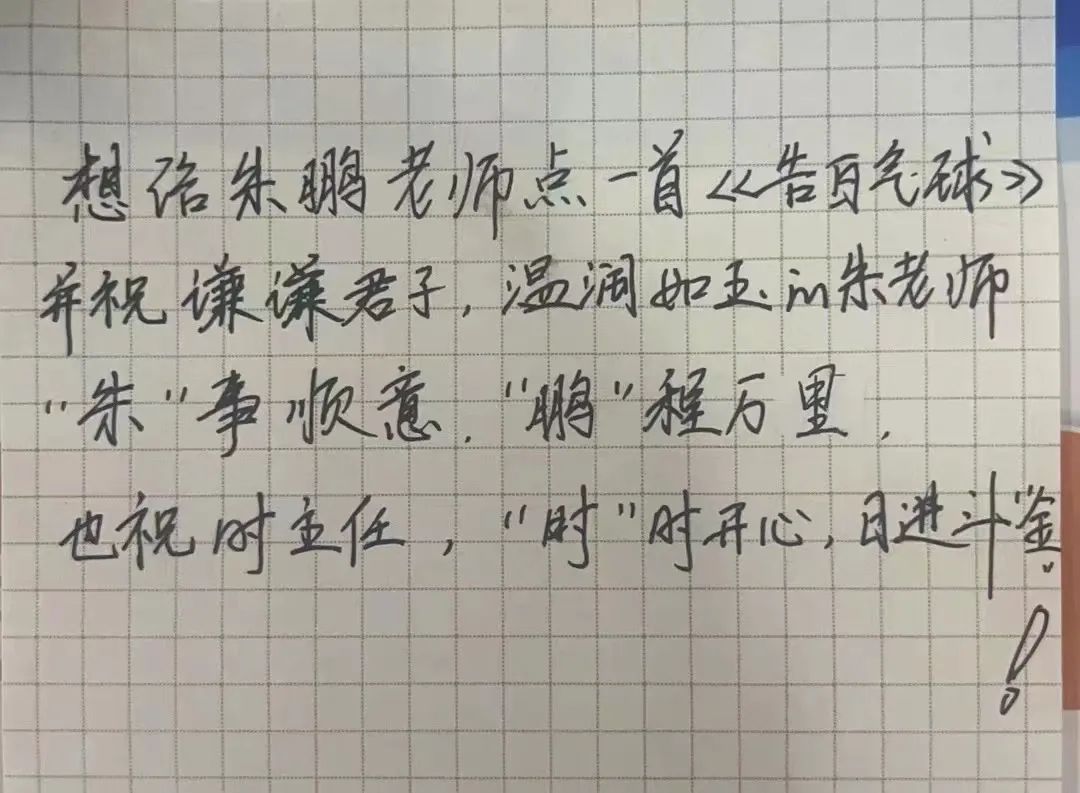 想给朱鹏老师点一首《告白气球》
并祝谦谦君子,温润如玉的朱老师
"朱"事顺意,"鹏"程万里,
也祝时主任,"时"时开心,日进斗"金"
!